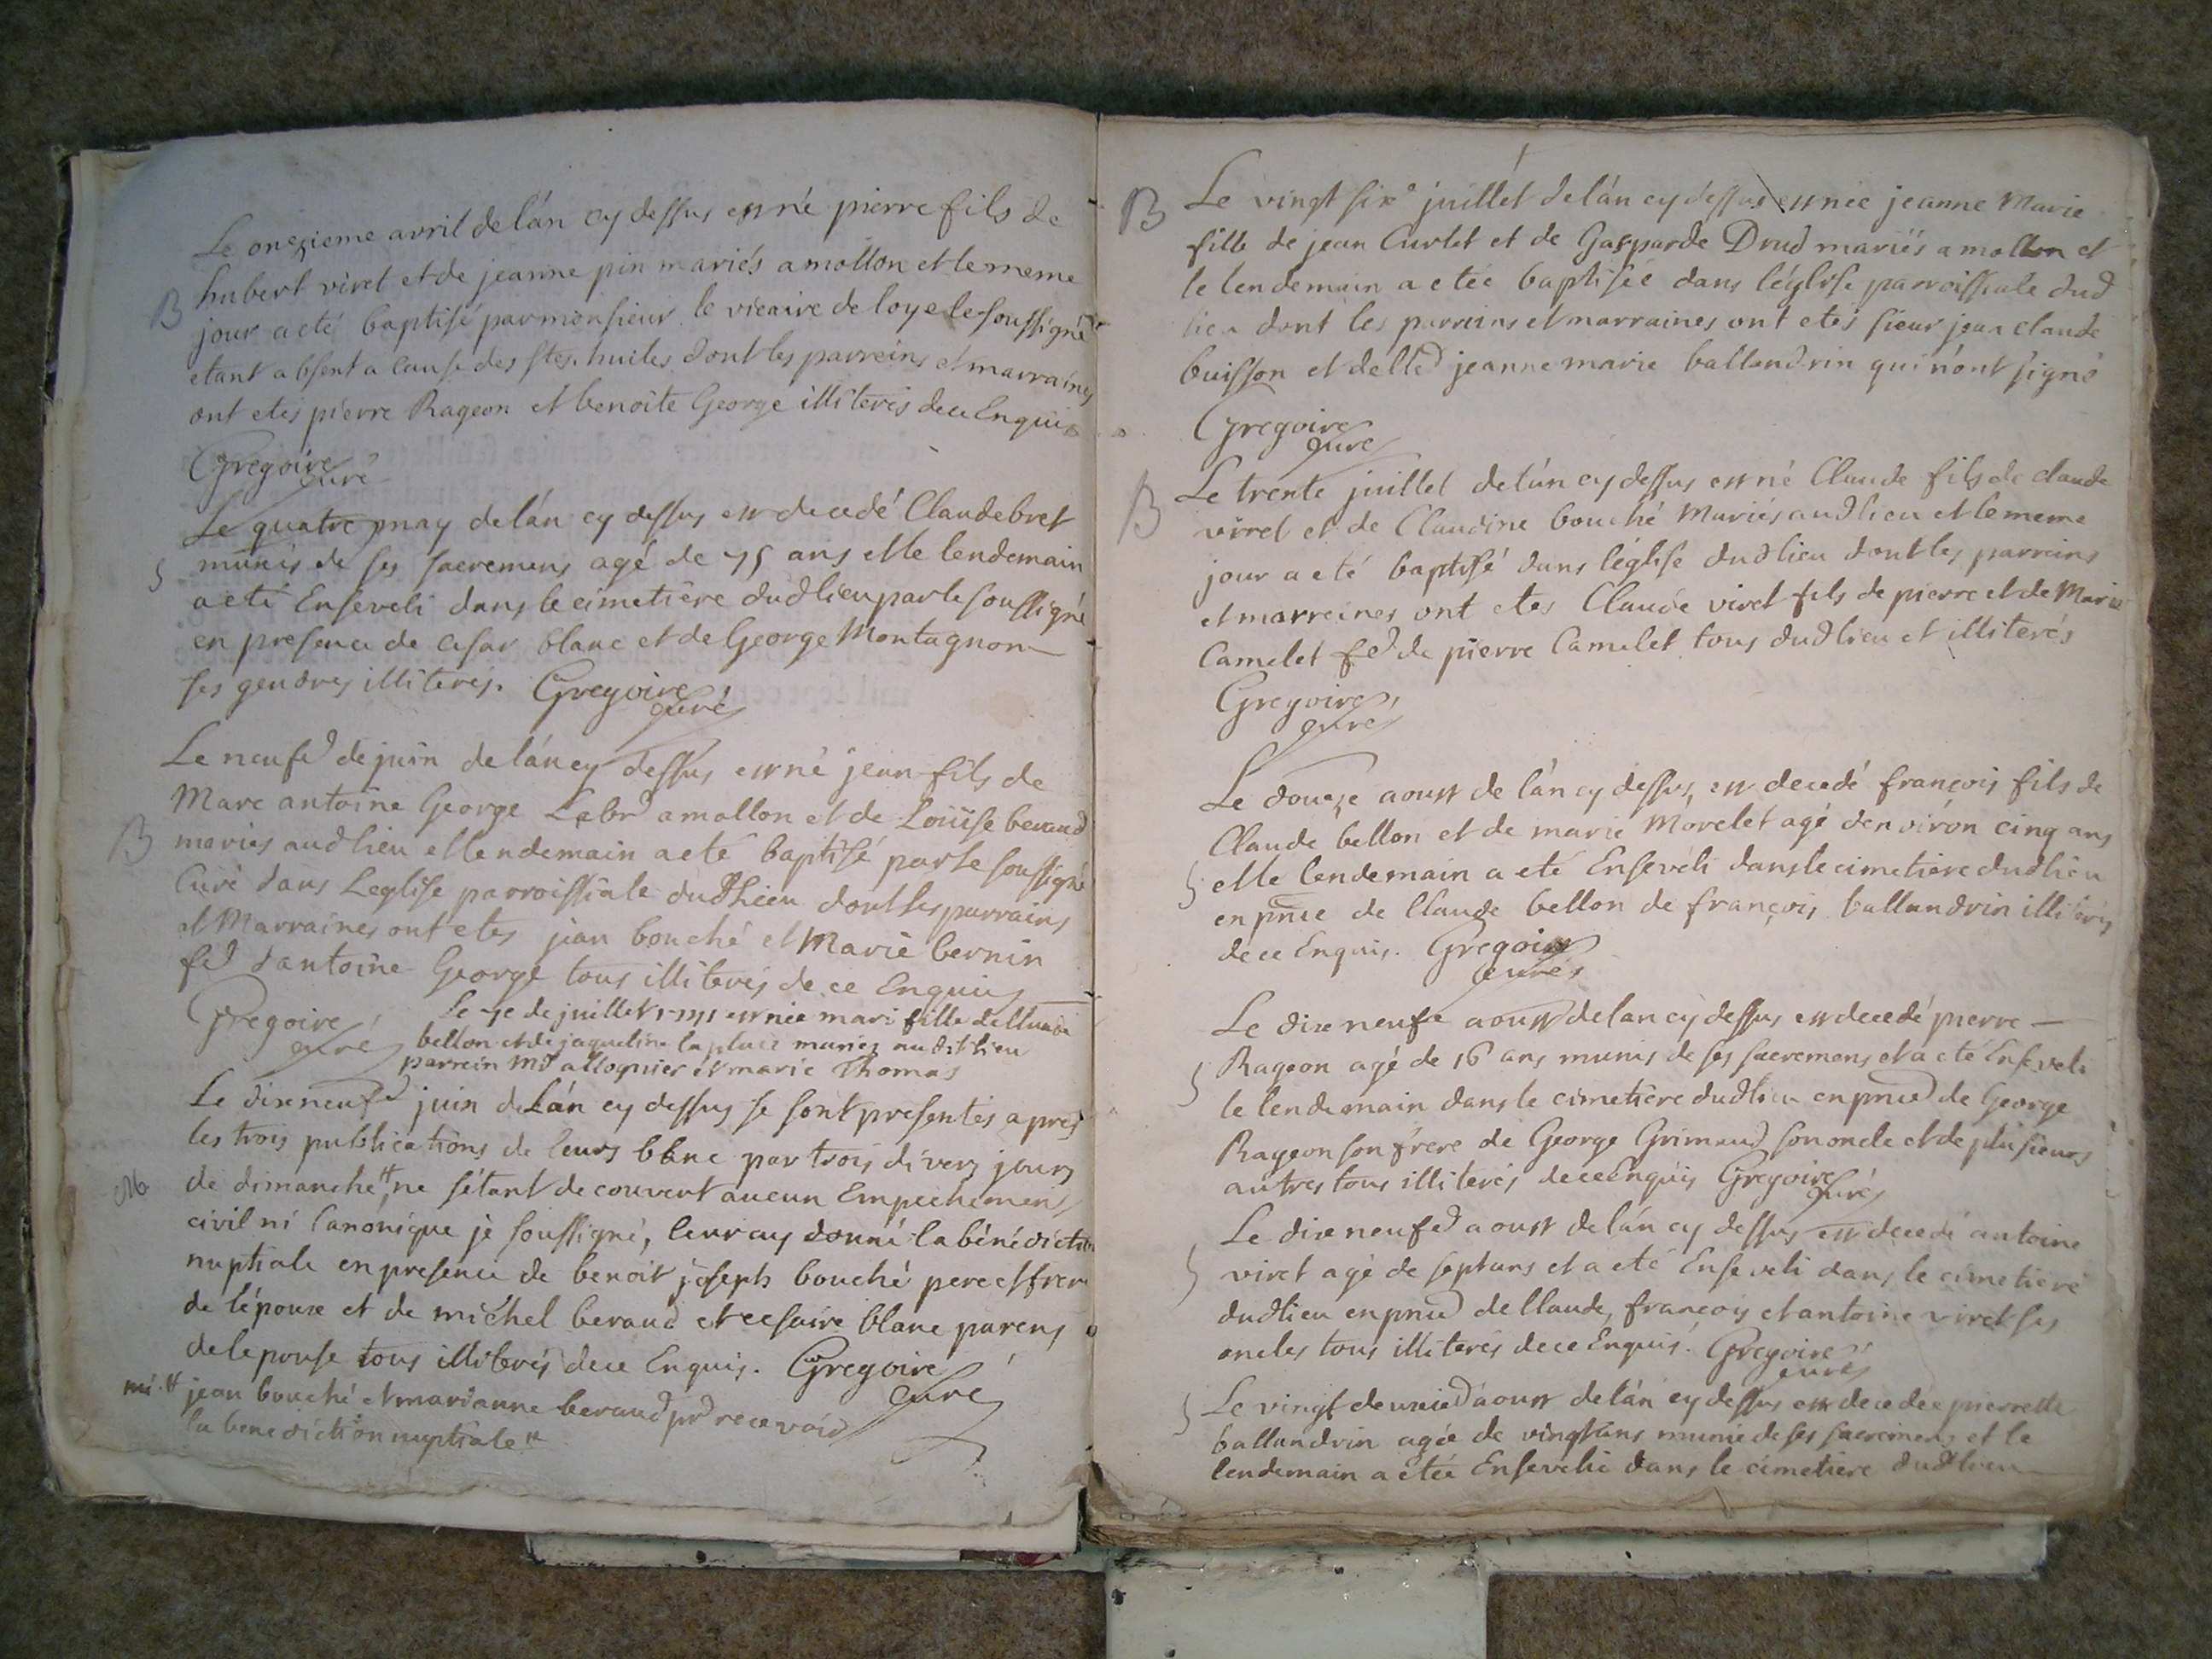 Le onezieme avril de lán cy dessus est né pierre fils de
B hubert viret et de jeanne pin mariés a mollon et le meme
jour a eté baptisé par monsieur le vicaire de loye le soussigné
etant absent a cause des stes. huiles dont les parreins et marraines
ont etes pierre Rageon et benoite George illiterés de ce Enquis
Gregoire
curé
Le quatre may de lán cy dessus est decedé Claude bret
S munis de ses sacremens agé de 75 ans et le lendemain
a eté Enseveli dans le cimetière dud lieu par le soussigné
en presence de cesar blanc et de George Montagnon
ses gendres illiterés. Gregoire
curé
Le neufe de juin de lán cy dessus est né jean fils de
Marc antoine George Labr a mollon et de Loüise beraud
B mariés aud lieu et lendemain a eté baptisé par le soussigné
Curé dans Leglise parroissiale dud Lieu dont les parrains
et Marraines ont etes jean bouché et Marie bernin
fe dantoine George tous illiterés de ce Enquis
Gregoire
curé
Le 7e de juillet 1771 est née mari fille de Claude
bellon et de jaqueline la place mariez audit lieu
parrein md alloguier et marie Thomas
Le dixneufe juin de Lán cy dessus se sont presentés apres
les trois publications de leurs banc par trois divers jours
M de dimanche # ne sétant decouvert aucun Empechemens
civil ni Canónique je soussigné, leur ay donné la bénédiction
nuptiale en presence de benoit joseph bouché pere et frere
de lépoux et de michel beraud et cesaire blanc parens
de lepouse tous illiterés de ce Enquis. Gregoire
curé
# jean bouché et marianne beraud pr recevoir
la benediction nuptiale #
B Le vingt sixe juillét de lán cy dessus est née jeanne Marie
fille de jean Curtet et de Gasparde Drud mariés a mollon et
le lendemain a etée baptisée dans léglise parroissiale dud
lieu dont les parreins et marraines ont etés sieur jean claude
buisson et delle jeanne marie ballandrin qui n'ont signé
Gregoire
curé
B Le trente juillet de lán cy dessus est né Claude fils de claude
virret et de Claudine bouché Mariés aud lieu et le meme
jour a eté baptisé dans léglise dud lieu dont les parreins
et marreines ont etes Claude viret fils de pierre et de Marie
Camelet fe de pierre Camelet tous dud lieu et illiterés
Gregoire
curé
Le douze aoust de lán cy dessus est decedé françois fils de
Claude bellon et de marie Morelet agé denvirón cinq ans
S et le lendemain a eté Enseveli dans le cimetiere dud lieu
en pnce de Claude bellon de françois ballandrin illiterés
de ce Enquis. Gregoire
curé
Le dixneufe aoust de lan cy dessus est decedé pierre
S Rageon agé de 16 ans munis de ses sacremens et a eté Enseveli
le lendemain dans le cimetière dud lieu en pnce de George
Rageon son frere de George Grimaud son oncle et de plusieurs
autres tous illiterés de ce Enquis Gregoire
curé
Le dixneufe aoust de lán cy dessus est decedé antoine
S viret agé de sept ans et a eté Enseveli dans le cimetiere
dud lieu en pnce de Claude, françois et antoine viret ses
oncles tous illiterés de ce Enquis. Gregoire
curé
S Le vingt deuxie aoust de lán cy dessus est decedée pierrette
ballandrin agée de vingt ans munie de ses sacremens et le
lendemain a etée Ensevelie dans le cimetiere dud lieu